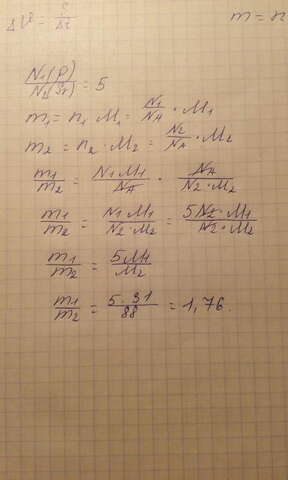 ΔV = S/Δt m = n
N₁(P)/N₂(Sr) = 5
m₁ = n₁ · M₁ = N₁/NA · M₁
m₂ = n₂ · M₂ = N₂/NA · M₂
m₁/m₂ = N₁ M₁/NA · NA/N₂ · M₂
m₁/m₂ = N₁ M₁/N₂ · M₂ = 5N₂ · M₁/N₂ · M₂
m₁/m₂ = 5M₁/M₂
m₁/m₂ = 5 · 31/88 = 1,76.